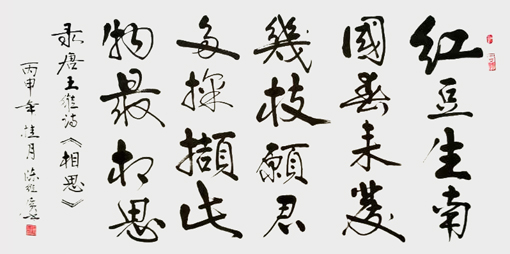 红豆生南
國春来發
幾枝願君
多採擷此
物最相思
录唐王维诗《相思》
丙申年桂月